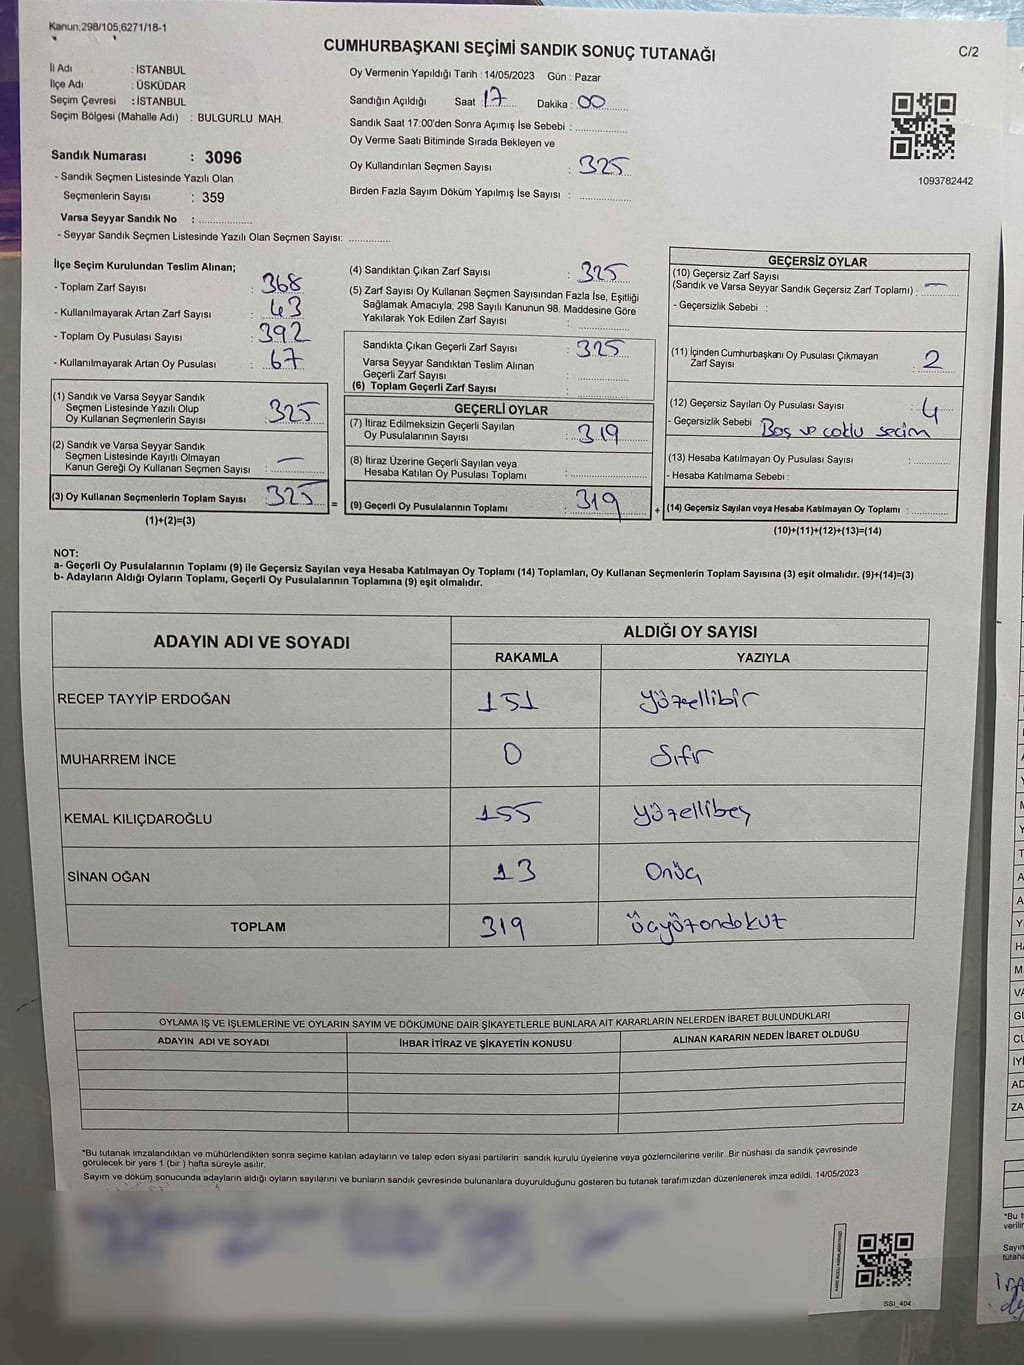 Kanun;298/105;6271/18-1
CUMHURBAŞKANI SEÇİMİ SANDIK SONUÇ TUTANAĞI
C/2
İl Adı : İSTANBUL
İlçe Adı : ÜSKÜDAR
Seçim Çevresi : İSTANBUL
Seçim Bölgesi (Mahalle Adı) : BULGURLU MAH.
Sandık Numarası : 3096
- Sandık Seçmen Listesinde Yazılı Olan
Seçmenlerin Sayısı : 359
Varsa Seyyar Sandık No : ...............
- Seyyar Sandık Seçmen Listesinde Yazılı Olan Seçmen Sayısı: ............
Oy Vermenin Yapıldığı Tarih : 14/05/2023 Gün : Pazar
Sandığın Açıldığı Saat : 17 Dakika : 00
Sandık Saat 17:00'den Sonra Açımış İse Sebebi : ...............
Oy Verme Saati Bitiminde Sırada Bekleyen ve
Oy Kullandırılan Seçmen Sayısı : 325
Birden Fazla Sayım Döküm Yapılmış İse Sayısı : ...............
1093782442
İlçe Seçim Kurulundan Teslim Alınan;
- Toplam Zarf Sayısı : 368
- Kullanılmayarak Artan Zarf Sayısı : 43
- Toplam Oy Pusulası Sayısı : 392
- Kullanılmayarak Artan Oy Pusulası : 67
(1) Sandık ve Varsa Seyyar Sandık
Seçmen Listesinde Yazılı Olup
Oy Kullanan Seçmenlerin Sayısı : 325
(2) Sandık ve Varsa Seyyar Sandık
Seçmen Listesinde Kayıtlı Olmayan
Kanun Gereği Oy Kullanan Seçmen Sayısı : —
(3) Oy Kullanan Seçmenlerin Toplam Sayısı 325 =
(1)+(2)=(3)
(4) Sandıktan Çıkan Zarf Sayısı : 325
(5) Zarf Sayısı Oy Kullanan Seçmen Sayısından Fazla İse, Eşitliği
Sağlamak Amacıyla, 298 Sayılı Kanunun 98. Maddesine Göre
Yakılarak Yok Edilen Zarf Sayısı : ...............
Sandıkta Çıkan Geçerli Zarf Sayısı : 325
Varsa Seyyar Sandıktan Teslim Alınan
Geçerli Zarf Sayısı : ...............
(6) Toplam Geçerli Zarf Sayısı : ...............
GEÇERLİ OYLAR
(7) İtiraz Edilmeksizin Geçerli Sayılan
Oy Pusulalarının Sayısı : 319
(8) İtiraz Üzerine Geçerli Sayılan veya
Hesaba Katılan Oy Pusulası Toplamı : ...............
(9) Geçerli Oy Pusulalarının Toplamı : 319 +
GEÇERSİZ OYLAR
(10) Geçersiz Zarf Sayısı
(Sandık ve Varsa Seyyar Sandık Geçersiz Zarf Toplamı) : —
- Geçersizlik Sebebi :
(11) İçinden Cumhurbaşkanı Oy Pusulası Çıkmayan
Zarf Sayısı : 2
(12) Geçersiz Sayılan Oy Pusulası Sayısı : 4
- Geçersizlik Sebebi Boş ve çoklu seçim
(13) Hesaba Katılmayan Oy Pusulası Sayısı : ............
- Hesaba Katılmama Sebebi :
(14) Geçersiz Sayılan veya Hesaba Katılmayan Oy Toplamı : ............
(10)+(11)+(12)+(13)=(14)
NOT:
a- Geçerli Oy Pusulalarının Toplamı (9) ile Geçersiz Sayılan veya Hesaba Katılmayan Oy Toplamı (14) Toplamları, Oy Kullanan Seçmenlerin Toplam Sayısına (3) eşit olmalıdır. (9)+(14)=(3)
b- Adayların Aldığı Oyların Toplamı, Geçerli Oy Pusulalarının Toplamına (9) eşit olmalıdır.
ADAYIN ADI VE SOYADI ALDIĞI OY SAYISI
RAKAMLA YAZIYLA
RECEP TAYYİP ERDOĞAN 151 yüzellibir
MUHARREM İNCE 0 Sıfır
KEMAL KILIÇDAROĞLU 155 yüzellibeş
SİNAN OĞAN 13 Onüç
TOPLAM 319 üçyüzondokuz
OYLAMA İŞ VE İŞLEMLERİNE VE OYLARIN SAYIM VE DÖKÜMÜNE DAİR ŞİKAYETLERLE BUNLARA AİT KARARLARIN NELERDEN İBARET BULUNDUKLARI
ADAYIN ADI VE SOYADI İHBAR İTİRAZ VE ŞİKAYETİN KONUSU ALINAN KARARIN NEDEN İBARET OLDUĞU
*Bu tutanak imzalandıktan ve mühürlendikten sonra seçime katılan adayların ve talep eden siyasi partilerin sandık kurulu üyelerine veya gözlemcilerine verilir .Bir nüshası da sandık çevresinde
görülecek bir yere 1 (bir ) hafta süreyle asılır.
Sayım ve döküm sonucunda adayların aldığı oyların sayılarını ve bunların sandık çevresinde bulunanlara duyurulduğunu gösteren bu tutanak tarafımızdan düzenlenerek imza edildi. 14/05/2023
SSI_404